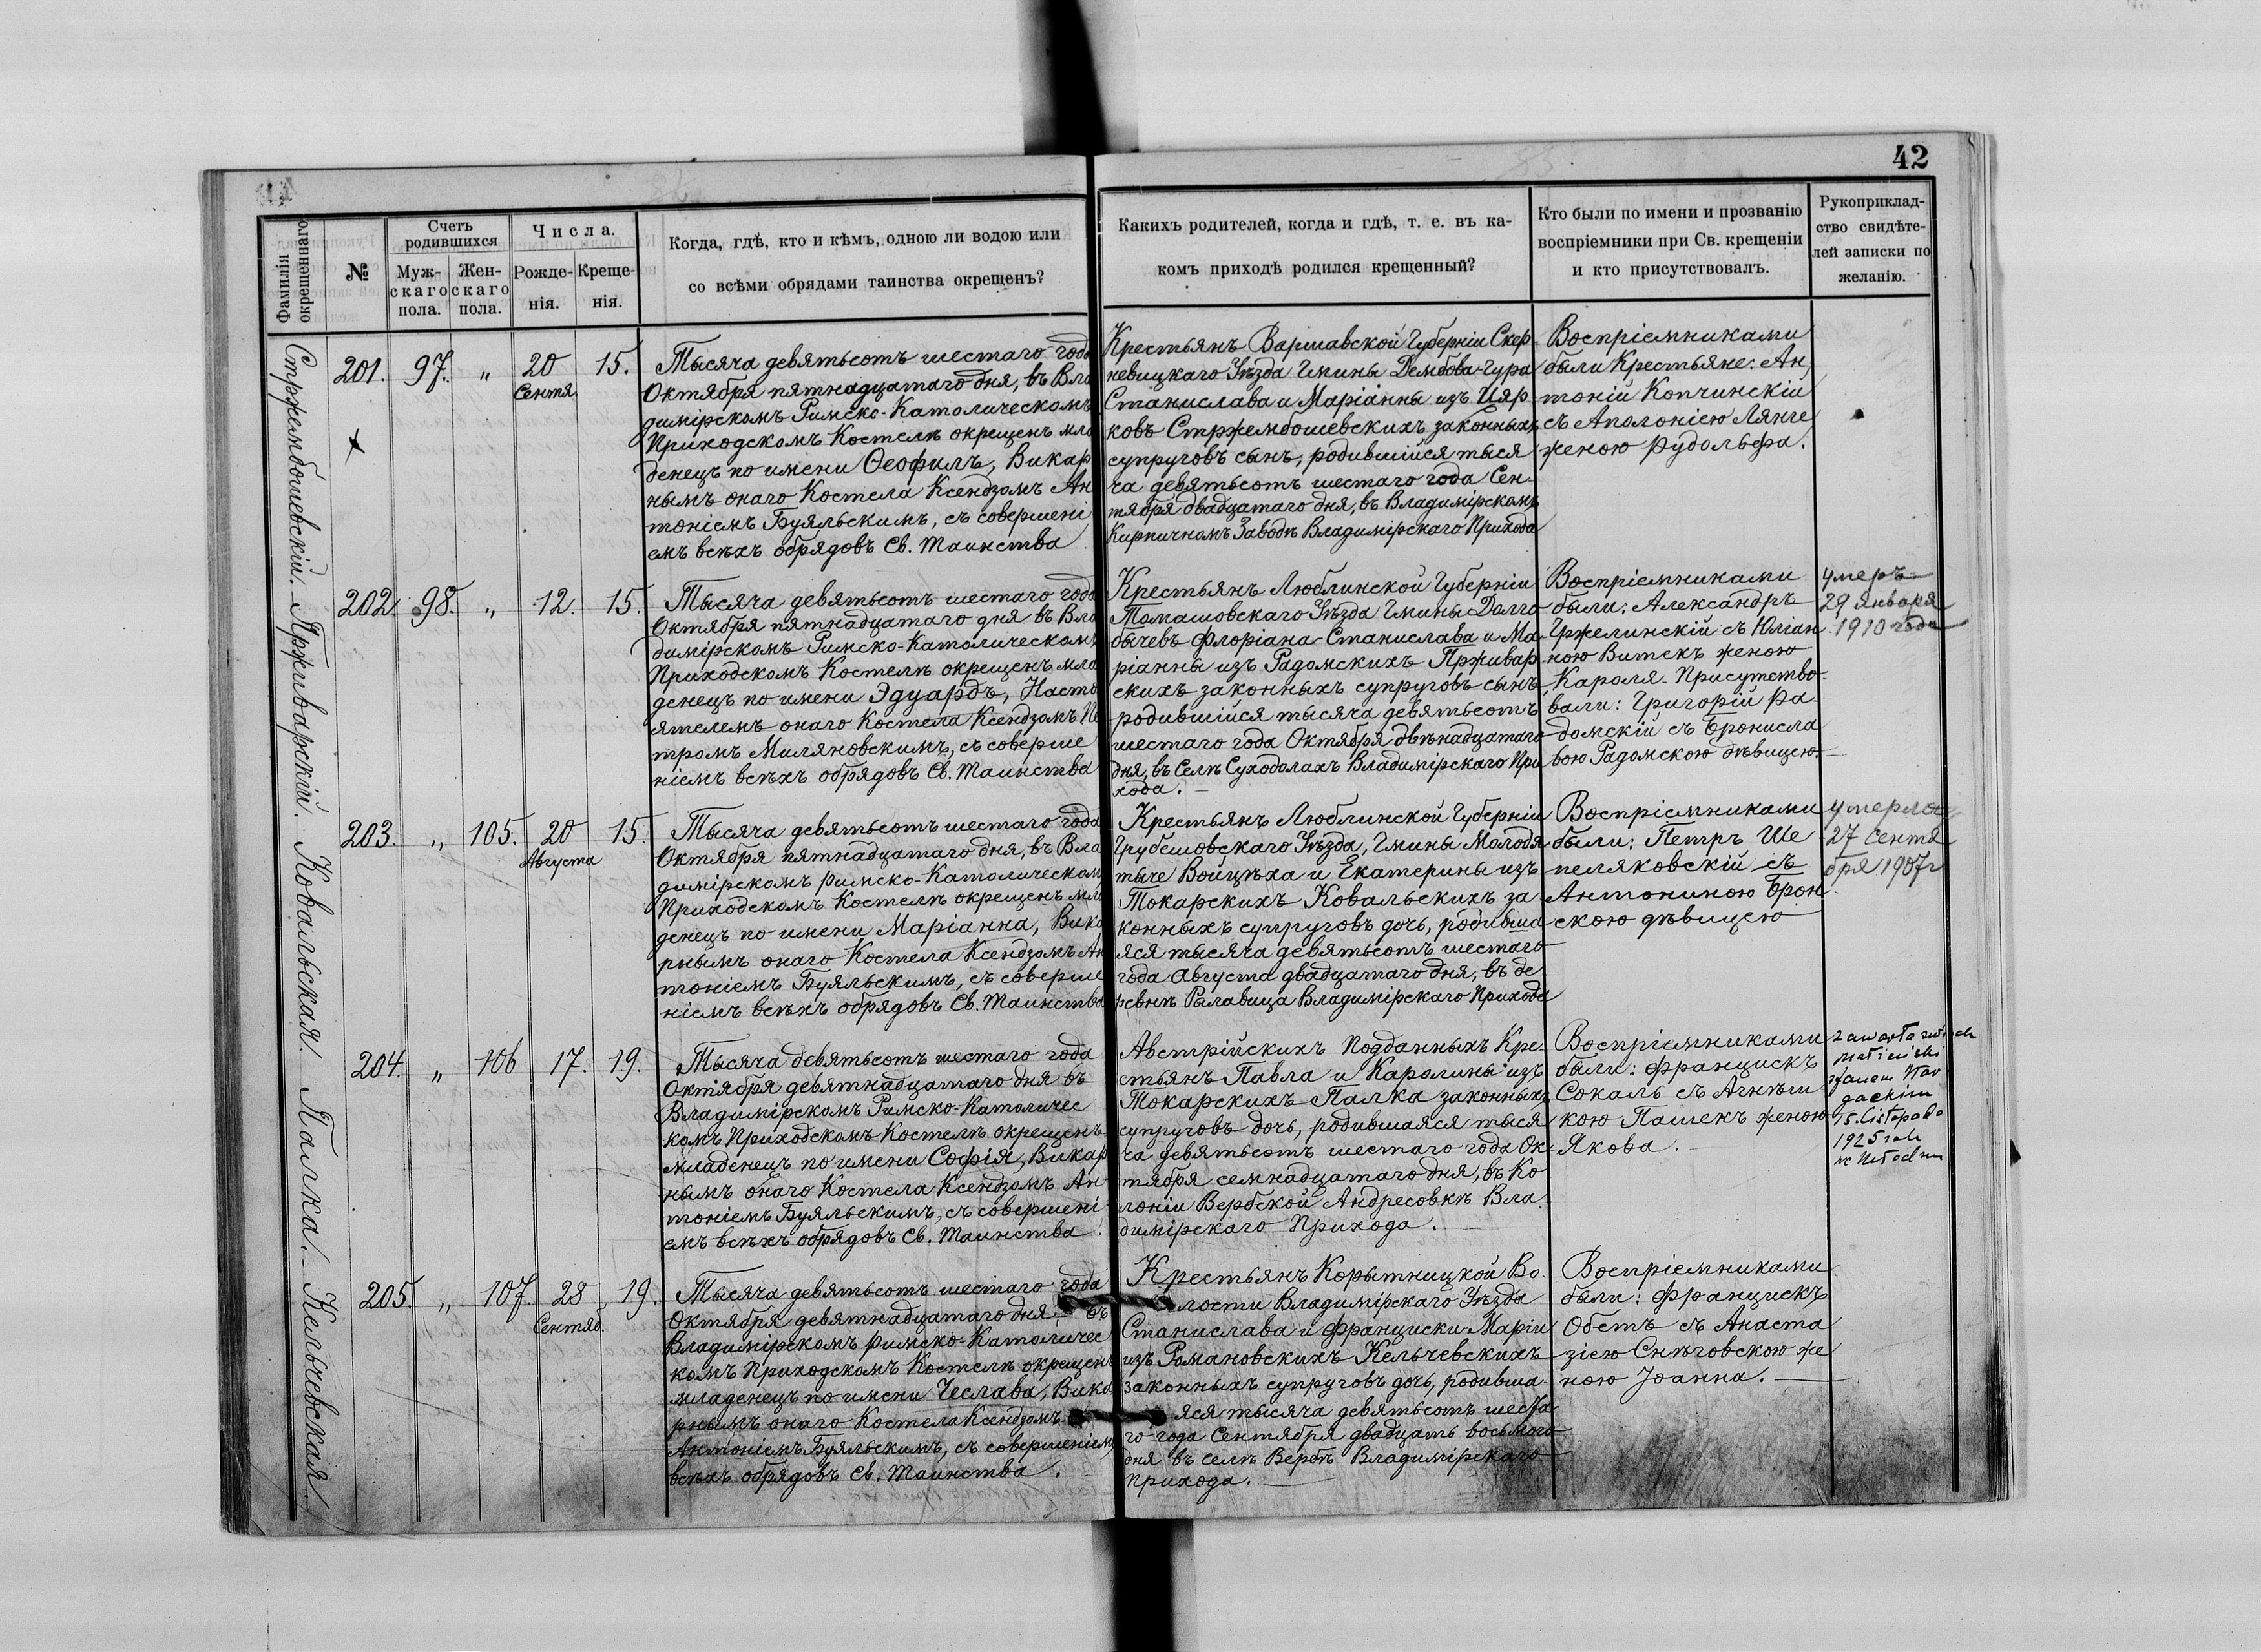 42
Фамилія окрещеннаго
№
Счетъ родившихся
Муж-
скаго
пола.
Жен-
скаго
пола.
Числа.
Рожде-
нія.
Креще-
нія.
Когда, гдѣ, кто и кѣмъ, одною ли водою или
со всѣми обрядами таинства окрещенъ?
Какихъ родителей, когда и гдѣ, т. е. въ ка-
комъ приходѣ родился крещенный?
Кто были по имени и прозванію
воспріемники при Св. крещеніи
и кто присутствовалъ.
Рукоприклад-
ство свидѣте-
лей записки по
желанію.
Стржембошевскій.
201. 97. „ 20 15.
Сентя.
Тысяча девятьсотъ шестаго года
Октября пятнадцатаго дня, въ Вла
димірскомъ Римско-Католическомъ
Приходскомъ Костелѣ окрещенъ мла
денецъ по имени Ѳеофилъ, Викар
нымъ онаго Костела Ксендзомъ Ан
тоніемъ Буяльскимъ, съ совершені
емъ всѣхъ обрядовъ Св. Таинства
Крестьянъ Варшавской Губерніи Скер
невицкаго Уѣзда Гмины Дембова-Гура
Станислава и Маріанны изъ Цяр
ковъ Стржембошевскихъ законныхъ
супруговъ сынъ, родившійся тыся
ча девятьсотъ шестаго года Сен
тября двадцатаго дня, въ Владимірскомъ
Кирпичномъ Заводѣ Владимірскаго Прихода
Воспріемниками
были Крестьяне: Ан
тоній Копчинскій
съ Аполоніею Лянге
женою Рудольфа.
Прживарскій.
202. 98. „ 12. 15.
Тысяча девятьсотъ шестаго года
Октября пятнадцатаго дня въ Вла
димірскомъ Римско-Католическомъ
Приходскомъ Костелѣ окрещенъ мла
денецъ по имени Эдуардъ, Насто
ятелемъ онаго Костела Ксендзомъ Пе
тромъ Миляновскимъ, съ соверше
ніемъ всѣхъ обрядовъ Св. Таинства
Крестьянъ Люблинской Губерніи
Томашовскаго Уѣзда Гмины Долго
бычевъ Флоріана-Станислава и Ма
ріанны изъ Радомскихъ Прживар
скихъ законныхъ супруговъ сынъ
родившійся тысяча девятьсотъ
шестаго года Октября двѣнадцатаго
дня, въ Селѣ Суходолахъ Владимірскаго При
хода.
Воспріемниками
были: Александръ
Гржелинскій съ Юліан
ною Витекъ женою
Кароля. Присутство
вали: Григорій Ра
домскій съ Бронисла
вою Радомскою дѣвицею.
Умеръ
29 Января
1910 года
Ковальская.
203. „ 105. 20 15.
Августа
Тысяча девятьсотъ шестаго года
Октября пятнадцатаго дня, въ Вла
димірскомъ Римско-Католическом
Приходскомъ Костелѣ окрещенъ мла
денецъ по имени Маріанна, Вика
рнымъ онаго Костела Ксендзомъ Ан
тоніемъ Буяльскимъ, съ соверше
ніемъ всѣхъ обрядовъ Св. Таинства
Крестьянъ Люблинской Губерніи
Грубешовскаго Уѣзда, Гмины Молодя
тыче Войцѣха и Екатерины изъ
Токарскихъ Ковальскихъ за
конныхъ супруговъ дочь, родивша
яся тысяча девятьсотъ шестаго
года Августа двадцатаго дня, въ де
ревнѣ Ралавица Владимірскаго Прихода
Воспріемниками
были: Петръ Ше
пеляковскій съ
Антониною Брон
скою дѣвицею
Умерла
27 Сентя
бря 1907 г
Палка.
204. „ 106 17. 19.
Тысяча девятьсотъ шестаго года
Октября девятнадцатаго дня въ
Владимірскомъ Римско-Католичес
комъ Приходскомъ Костелѣ окрещенъ
младенецъ по имени Софія, Викар
нымъ онаго Костела Ксендзомъ Ан
тоніемъ Буяльскимъ, съ совершені
емъ всѣхъ обрядовъ Св. Таинства.
Австрійскихъ Подданныхъ Кре
стьянъ Павла и Каролины изъ
Токарскихъ Палка законныхъ
супруговъ дочь, родившаяся тыся
ча девятьсотъ шестаго года Ок
тября семнадцатаго дня, въ Ко
лоніи Вербской Андресовкѣ Вла
димірскаго Прихода.
Воспріемниками
были: Францискъ
Сокаль съ Агнѣш
кою Пашекъ женою
Якова.
zawarła
z Janem
15 listopada
1925
Кельчевская.
205. „ 107. 28 19.
Сентяб.
Тысяча девятьсотъ шестаго года
Октября девятнадцатаго дня въ
Владимірскомъ Римско-Католичес
комъ Приходскомъ Костелѣ окрещенъ
младенецъ по имени Чеслава, Вика
рнымъ онаго Костела Ксендзомъ
Антоніемъ Буяльскимъ, съ совершеніем
всѣхъ обрядовъ Св. Таинства.
Крестьянъ Корытницкой Во
лости Владимірскаго Уѣзда
Станислава и Франциски-Маріи
изъ Романовскихъ Кельчевскихъ
законныхъ супруговъ дочь, родивша
яся тысяча девятьсотъ шеста
го года Сентября двадцать восьмого
дня въ селѣ Вербѣ Владимірскаго
Прихода.
Воспріемниками
были: Францискъ
Обстъ съ Анаста
зіею Снѣговскою же
ною Іоанна.